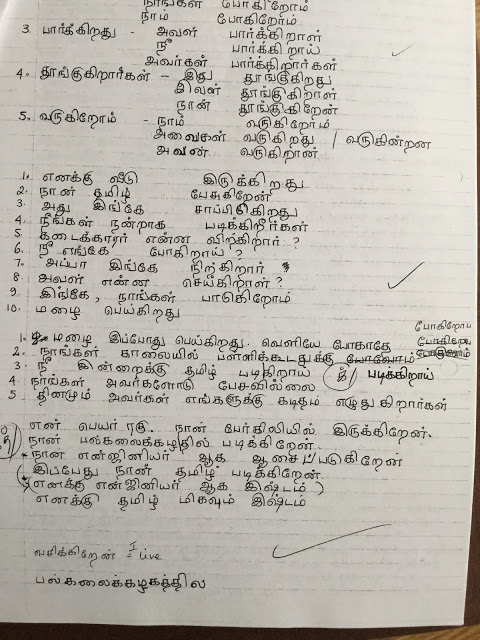 நாங்கள் போகிறோம்
நாம் போகிறோம்
3. பார்க்கிறது - அவள் பார்க்கிறாள்
நீ பார்க்கிறாய்
அவர்கள் பார்க்கிறார்கள்
4. தூங்குகிறார்கள் - இது தூங்குகிறது
இவள் தூங்கிறாள்
நான் தூங்குகிறேன்
5. வருகிறோம் - நாம் வருகிறோம்
அவைகள் வருகிறது / வருகின்றன
அவன் வருகிறான்
1. எனக்கு வீடு இருக்கிறது
2. நான் தமிழ் பேசுகிறேன்
3. அது இங்கே சாப்பிடுகிறது
4. நீங்கள் நன்றாக படிக்கிறீர்கள்
5. கடைக்காரர் என்ன விற்கிறார் ?
6. நீ எங்கே போகிறாய் ?
7. அப்பா இங்கே நிற்கிறார்
8. அவள் என்ன செய்கிறாள் ?
9. இங்கே, நாங்கள் பாடுகிறோம்
10. மழை பெய்கிறது
1. மழை இப்போது பெய்கிறது. வெளியே போகாதே
2. நாங்கள் காலையில் பள்ளிக்கூடதுக்கு போவோம்
3. நீ இன்றைக்கு தமிழ் படிகிறாய் க் / படிக்கிறாய்
4 நாங்கள் அவர்களோடு பேசவில்லை
5 தினமும் அவர்கள் எங்களுக்கு கடிதம் எழுதுகிறார்கள்
என் பெயர் ரகு. நான் பேர்கிலியில் இருக்கிறேன்.
நான் பல்கலைக்கழதில் படிக்கிறேன்.
நான் என்ஜினியர் ஆக ஆசைப்படுகிறேன்
இப்பேது நான் தமிழ் படிக்கிறேன்
(எனக்கு என்ஜினியர் ஆக இஷ்டம்)
எனக்கு தமிழ் மிகவும் இஷ்டம்
வசிக்கிறேன் = I live
பல்கலைக்கழகத்தில